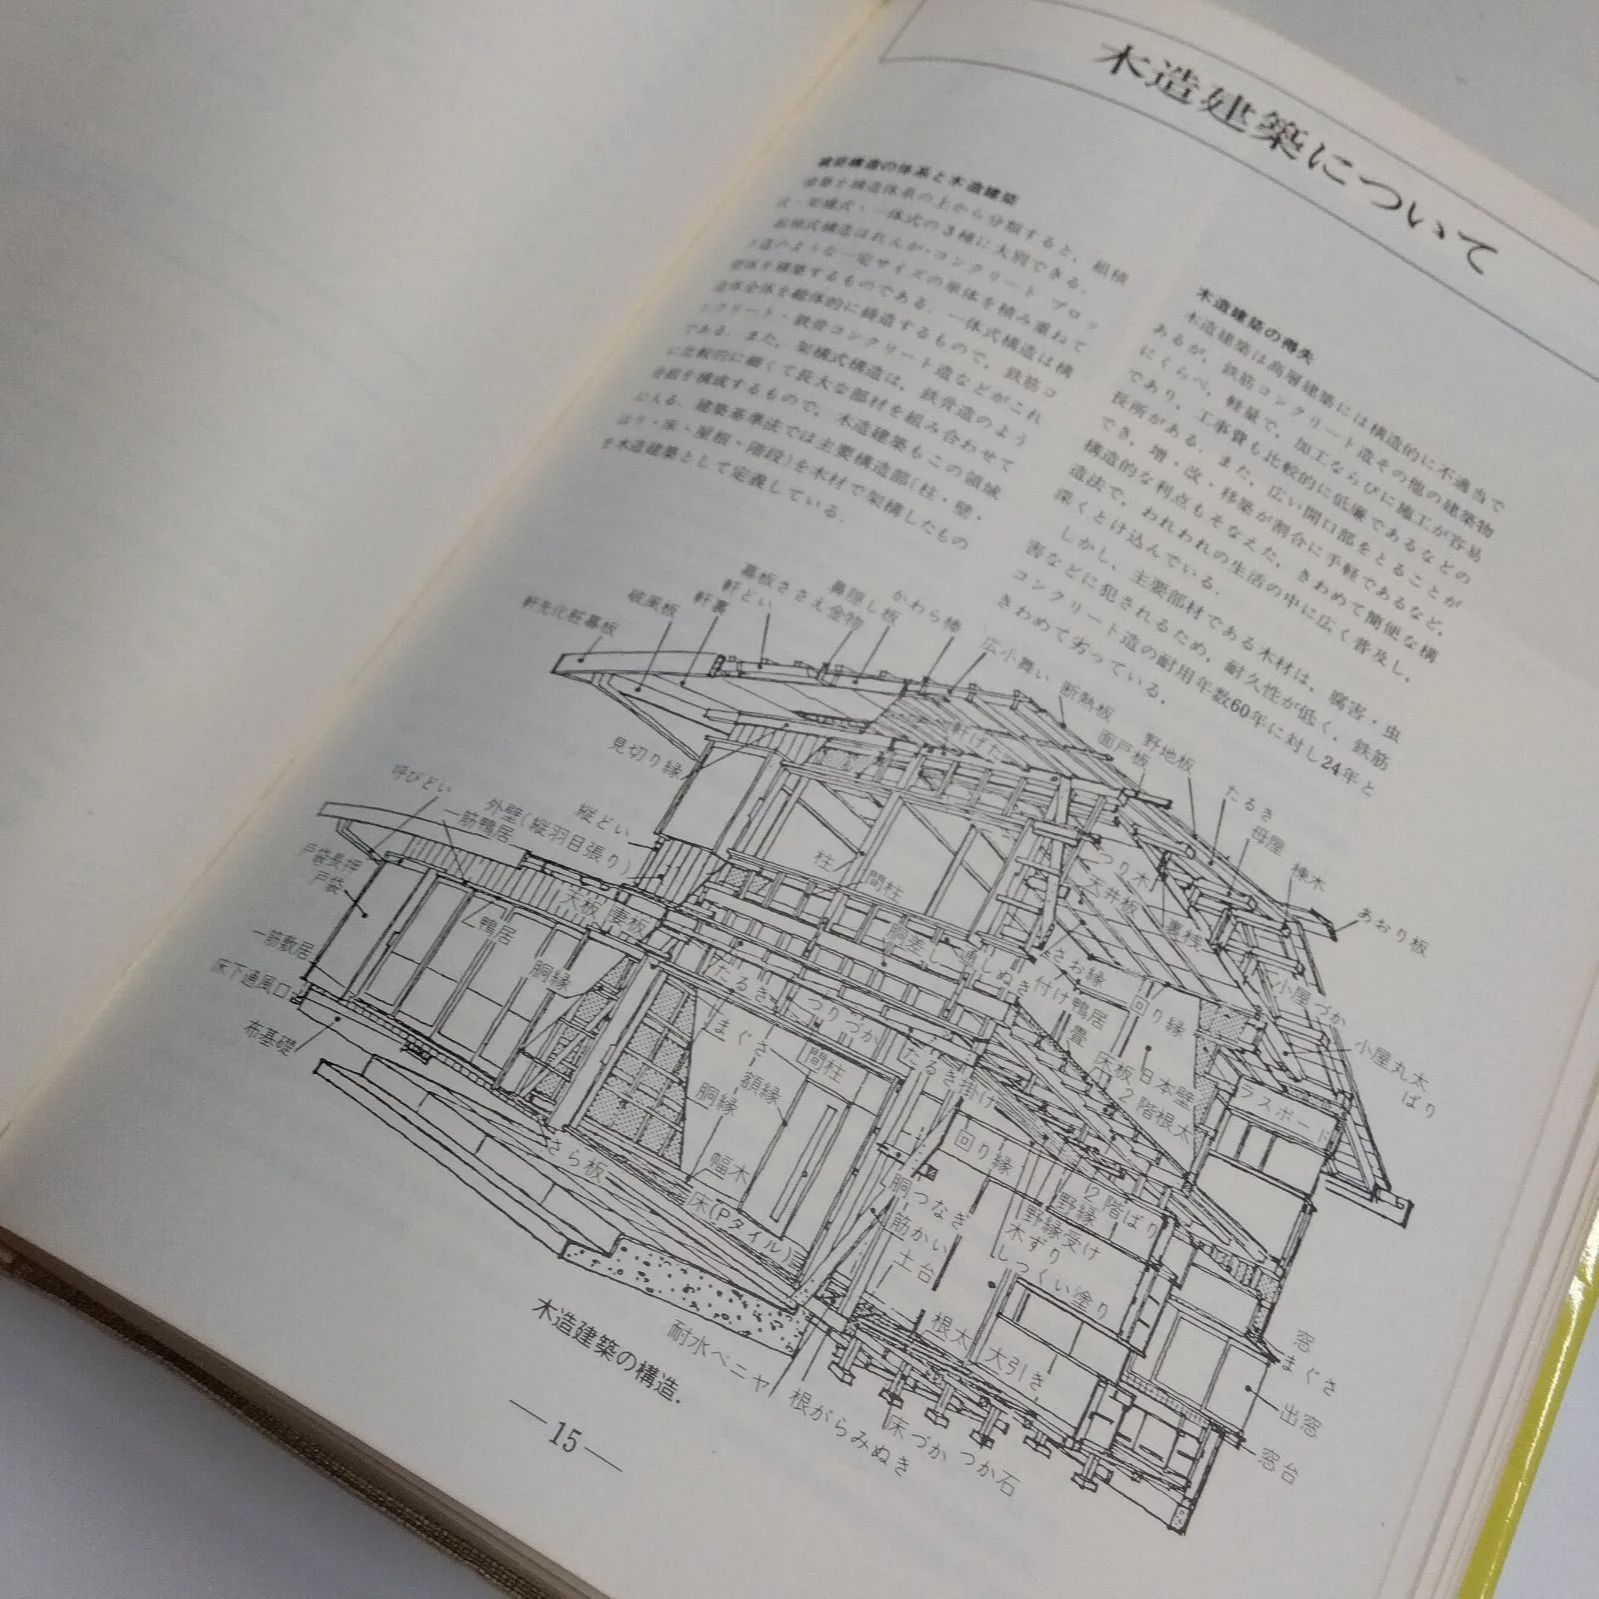 木造建築について
建築構造の体系と木造建築
建築を構造体系の上から分類すると，組積
式・架構式・一体式の3種に大別できる．
組積式構造はれんが・コンクリート ブロッ
ク造のような一定サイズの単体を積み重ねて
壁体を構築するものである．一体式構造は構
造体全体を総体的に鋳造するもので，鉄筋コ
ンクリート・鉄骨コンクリート造などがこれ
である．また，架構式構造は，鉄骨造のよう
に比較的に細くて長大な部材を組み合わせて
骨組を構成するもので，木造建築もこの領域
に入る．建築基準法では主要構造部(柱・壁・
はり・床・屋根・階段)を木材で架構したもの
を木造建築として定義している．
木造建築の得失
木造建築は高層建築には構造的に不適当で
あるが，鉄筋コンクリート造その他の建築物
にくらべ，軽量で，加工ならびに施工が容易
であり，工事費も比較的に低廉であるなどの
長所がある．また，広い開口部をとることが
でき，増・改・移築が割合に手軽であるなど，
構造的な利点もそなえた，きわめて簡便な構
造法で，われわれの生活の中に広く普及し，
深くとけ込んでいる．
しかし，主要部材である木材は，腐害・虫
害などに犯されるため，耐久性が低く，鉄筋
コンクリート造の耐用年数60年に対し24年と
きわめて劣っている．
軒先化粧幕板
破風板
軒裏
軒どい
幕板ささえ金物
鼻隠し板
かわら棒
広小舞い
断熱板
面戸板
野地板
たるき
母屋
棟木
あおり板
軒げた
見切り縁
呼びどい
一筋鴨居
外壁(縦羽目張り)
縦どい
戸袋長押
戸袋
一筋敷居
床下通風口
布基礎
柱
間柱
つり木
天井板
裏桟
天板
妻板
鴨居
胴縁
胴差し
通しぬき
さお縁
付け鴨居
畳
回り縁
小屋づか
小屋丸太
ばり
たるき
つりづか
まぐさ
間柱
たるき掛け
床板
日本壁
2階根太
ラスボード
額縁
胴縁
幅木
さら板
床(Pタイル)
回り縁
胴つなぎ
筋かい
土台
2階ばり
野縁
野縁受け
木ずり
しっくい塗り
根太
大引き
窓
まぐさ
出窓
窓台
耐水ベニヤ
根がらみぬき
床づか
つか石
木造建築の構造．
—15—